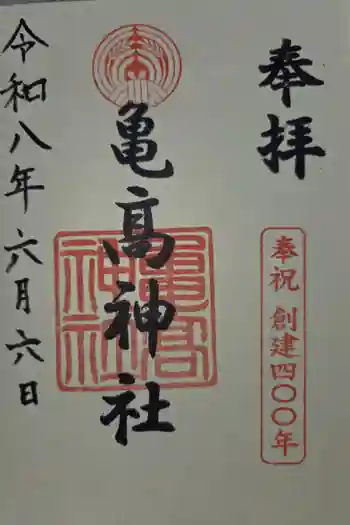 奉拝
奉祝 創建四〇〇年
亀高神社
亀高神社
令和八年六月六日